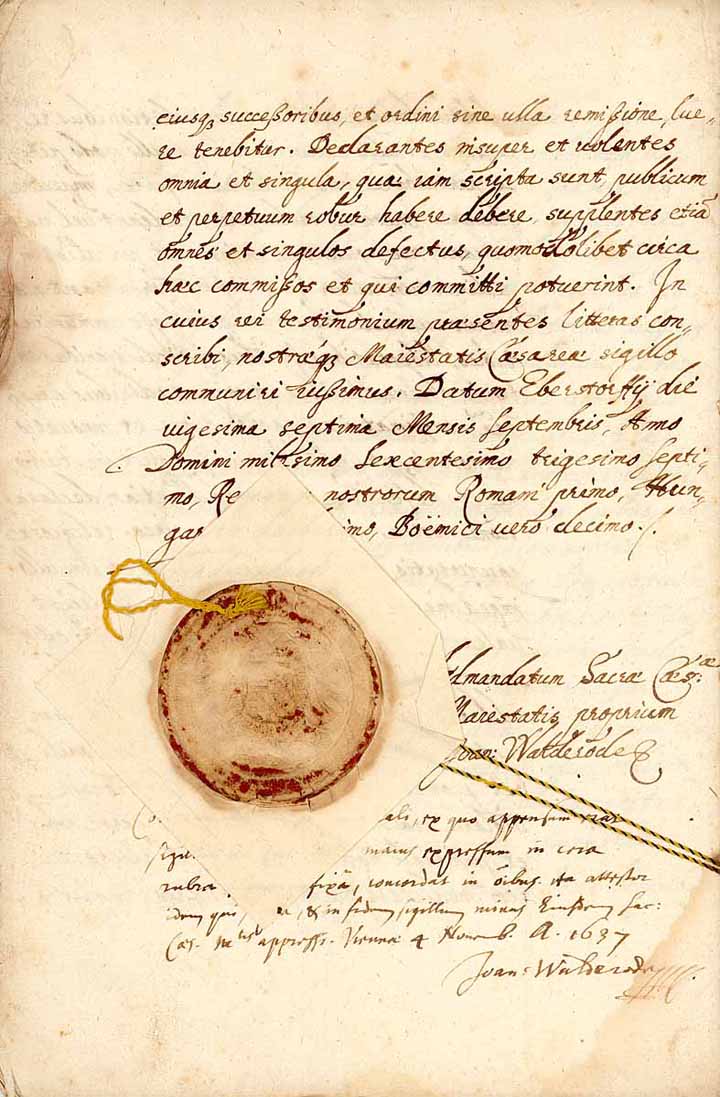 eiusq3 successoribus, et ordini sine ulla remissione, lue-
re tenebitur. Declarantes insuper et uolentes
omnia et singula, quæ iam scripta sunt, publicum
et perpetuum robur habere debere, supplentes etiã
omnes et singulos defectus, quomodolibet circa
hæc commissos et qui committi potuerint. In
cuius rei testimonium præsentes litteras con-
scribi, nostræq3 Maiestatis Cæsareæ sigillo
communiri iussimus. Datum Eberstorffij die
uigesima septima Mensis Septembris, Anno
Domini milesimo Sexcentesimo trigesimo septi-
mo, Re nostrorum Romani primo, Hun-
gar imo, Boëmici uero decimo.
Admandatum Sacræ Cæs:æ
Maiestatis proprium
Joan: Walderode
ali, ex quo appensum erat
sigil maius expressum in cera
rubra fixã, concordat in õibus. ita attestor
idem qui, & in fidem sigillum minus Eiusdem Sac:
Cæs. Mtis appressi. Viennæ 4 Nouemb. A. 1637
Joan: Walderode